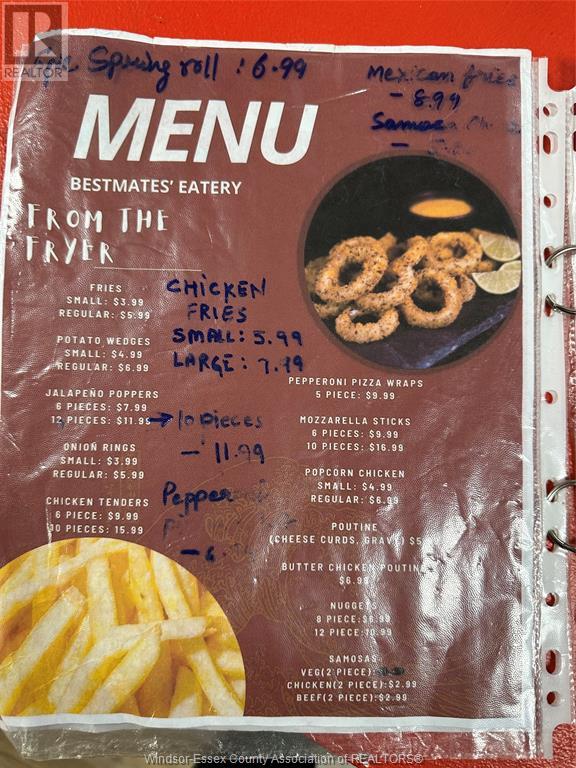 REALTOR®
Spring roll : 6.99
Mexican fries
- 8.99
Samosa
MENU
BESTMATES' EATERY
FROM THE
FRYER
FRIES
SMALL: $3.99
REGULAR: $5.99
POTATO WEDGES
SMALL: $4.99
REGULAR: $6.99
JALAPEÑO POPPERS
6 PIECES: $7.99
12 PIECES: $11.99
ONION RINGS
SMALL: $3.99
REGULAR: $5.99
CHICKEN TENDERS
6 PIECE: $9.99
10 PIECES: 15.99
CHICKEN
FRIES
SMALL: 5.99
LARGE: 7.99
→ 10 pieces
- 11.99
PEPPERONI PIZZA WRAPS
5 PIECE: $9.99
MOZZARELLA STICKS
6 PIECES: $9.99
10 PIECES: $16.99
POPCORN CHICKEN
SMALL: $4.99
REGULAR: $6.99
POUTINE
(CHEESE CURDS, GRAVY) $5
BUTTER CHICKEN POUTIN
$6.99
NUGGETS
8 PIECE:
12 PIECE:10.99
SAMOSAS
VEG(2 PIECE):
CHICKEN(2 PIECE):$2.99
BEEF(2 PIECE):$2.99
Windsor-Essex County Association of REALTORS®